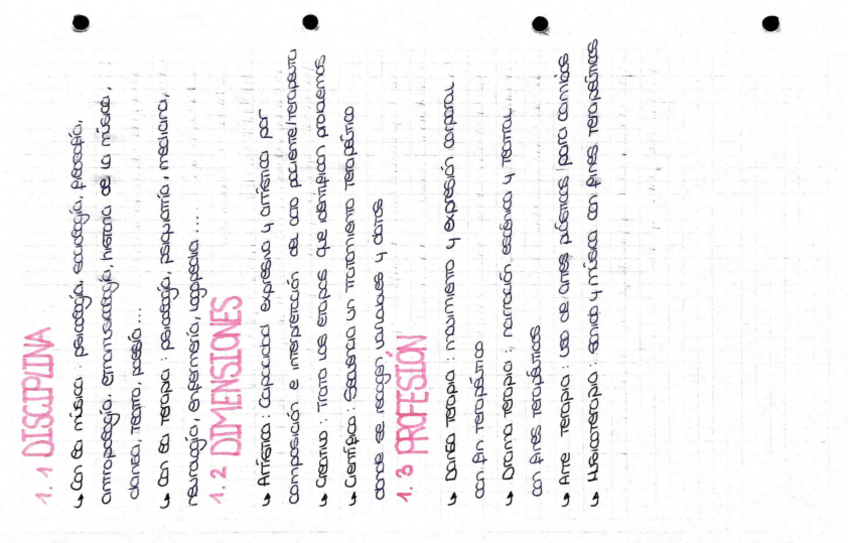 1.1 DISCIPLINA
↳ Con la música: psicología, sociología, filosofía,
antropología, etnomusicología, historia de la música,
danza, teatro, poesía...
↳ Con la terapia: psicología, psiquiatría, medicina,
neurología, enfermería, logopedia...
1.2 DIMENSIONES
↳ Artística: Capacidad expresiva y artística por
composición e interpretación del acto paciente/terapeuta
↳ Creativo: Trata las etapas que identifican problemas
↳ Científica: Secuencia un tratamiento terapéutico
donde se recogen variables y datos
1.3 PROFESIÓN
↳ Danza terapia: movimiento y expresión corporal
con fin terapéutico
↳ Drama terapia: narración escénica y teatral
con fines terapéuticos
↳ Arte terapia: uso de artes plásticas para cambios
↳ Musicoterapia: sonido y música con fines terapéuticos